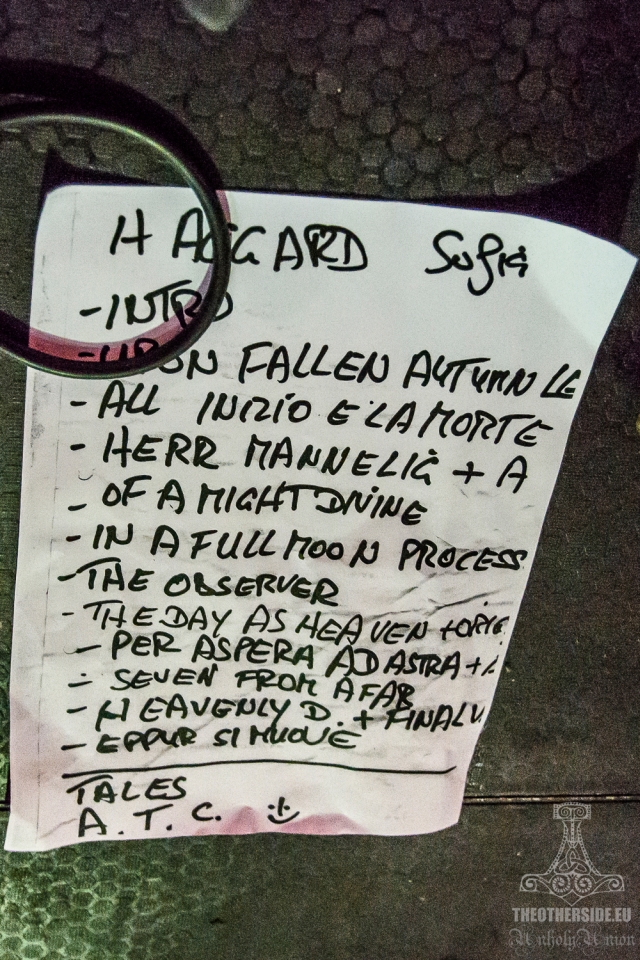 HAGGARD Sofia
- INTRO
- UPON FALLEN AUTUMN LE
- ALL INIZIO E LA MORTE
- HERR MANNELIG + A
- OF A MIGHT DIVINE
- IN A FULL MOON PROCESS
- THE OBSERVER
- THE DAY AS HEAVEN +
- PER ASPERA AD ASTRA +
- SEVEN FROM AFAR
- HEAVENLY D. + FINAL
- EPPUR SI MUOVE
TALES
A. T. C.
THEOTHERSIDE.EU
UnholyUnion